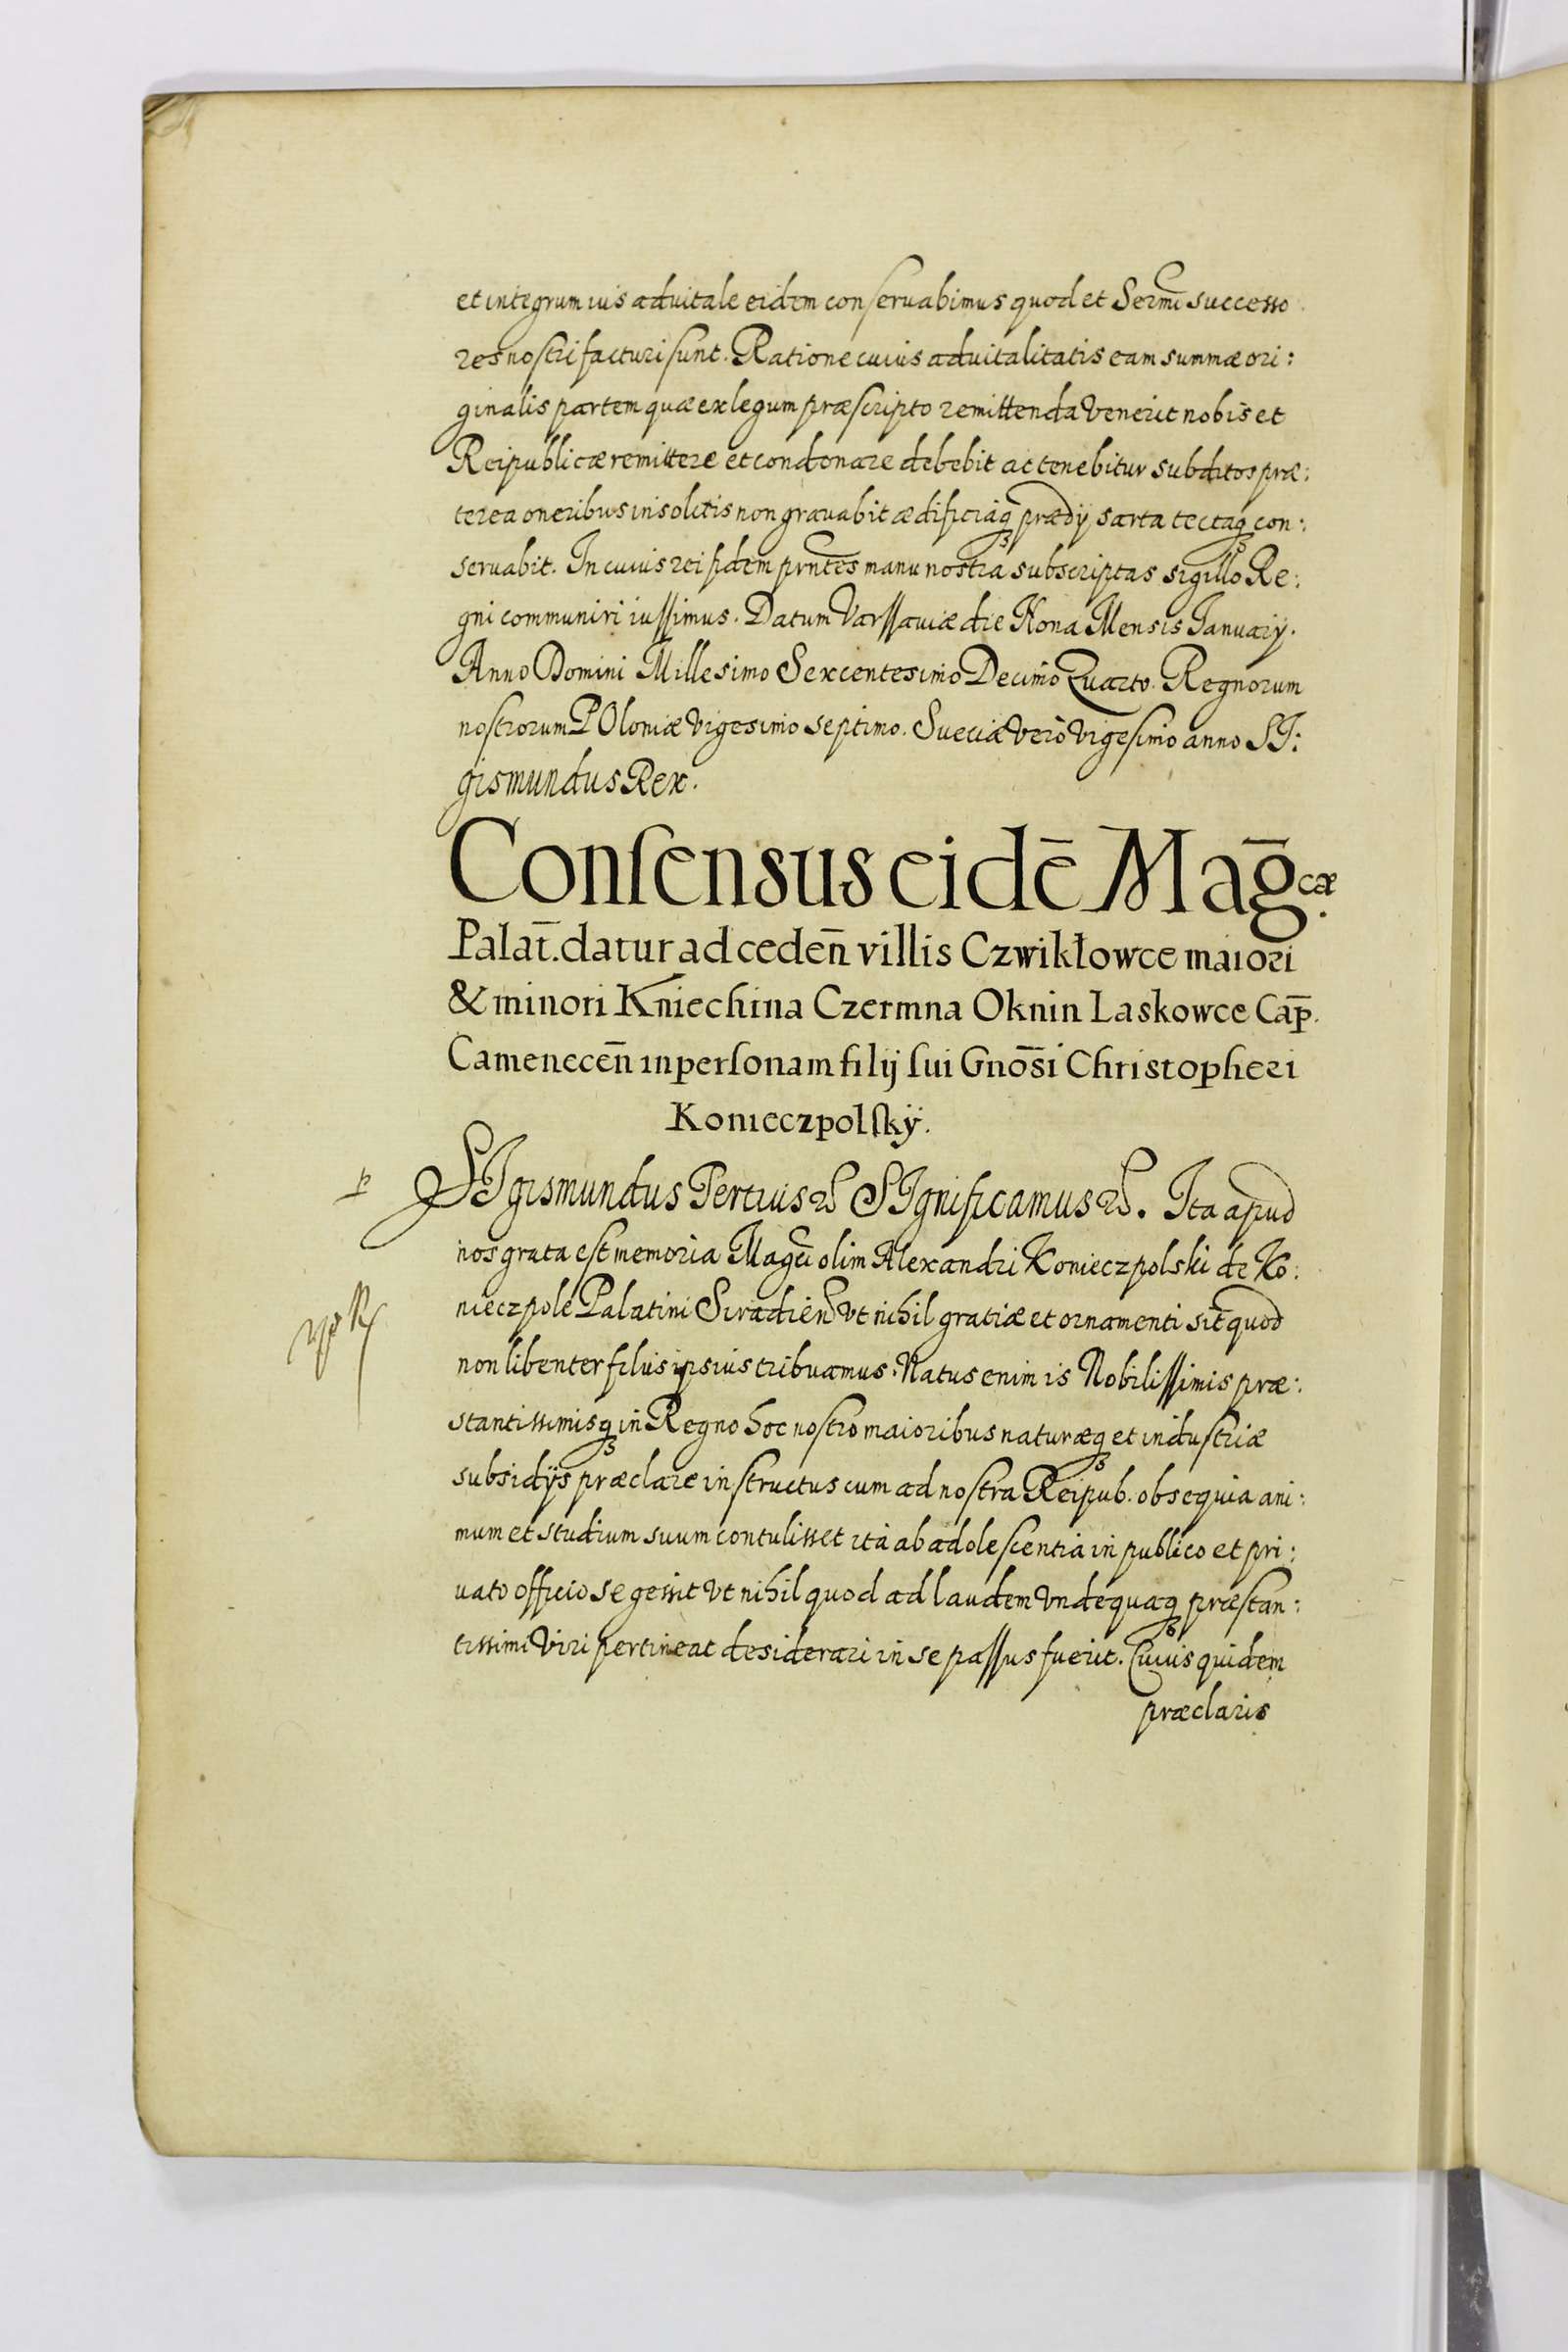 et integrum ius advitale eidem conservabimus quod et Sermi successo
res nostri facturi sunt. Ratione cuius advitalitatis eam summæ ori:
ginalis partem quæ ex legum præscripto remittenda venerit nobis et
Reipublicæ remittere et condonare debebit ac tenebitur subditos præ:
terea oneribus insolitis non gravabit ædificiaq3 prædij sarta tectaq3 con:
servabit. In cuius rei fidem pr̄ntes manu nostra subscriptas sigillo Re:
gni communiri iussimus. Datum Varssaviæ die Nona Mensis Ianuarij.
Anno Domini Millesimo Sexcentesimo Decimo Quarto. Regnorum
nostrorum POloniæ vigesimo septimo. Sueciæ verò vigesimo anno SI:
gismundus Rex.
Consensus eidē Maḡcæ.
Palat̄. datur ad ceden̄ villis Czwikłowce maiori
& minori Kniechina Czermna Oknin Laskowce Cap̄.
Camenecen̄ in personam filij sui Gnōsi Christopheri
Konieczpolskÿ.
SIgismundus Tertius etc SIgnificamus etc. Ita apud
nos grata est memoria Magci olim Alexandri Konieczpolski de Ko:
nieczpole Palatini Siradien̄ vt nihil gratiæ et ornamenti sit quod
non libenter filiis ipsius tribuamus. Natus enim is Nobilissimis præ:
stantissimisq3 in Regno hoc nostro maioribus naturæq3 et industriæ
subsidijs præclare instructus cum ad nostra Reipub. obsequia ani:
mum et studium suum contulisset ita ab adolescentia in publico et pri:
uato officio se gessit vt nihil quod ad laudem vndequaq3 præstan:
tissimi viri pertineat desiderari in se passus fuerit. Cuius quidem
præclaris